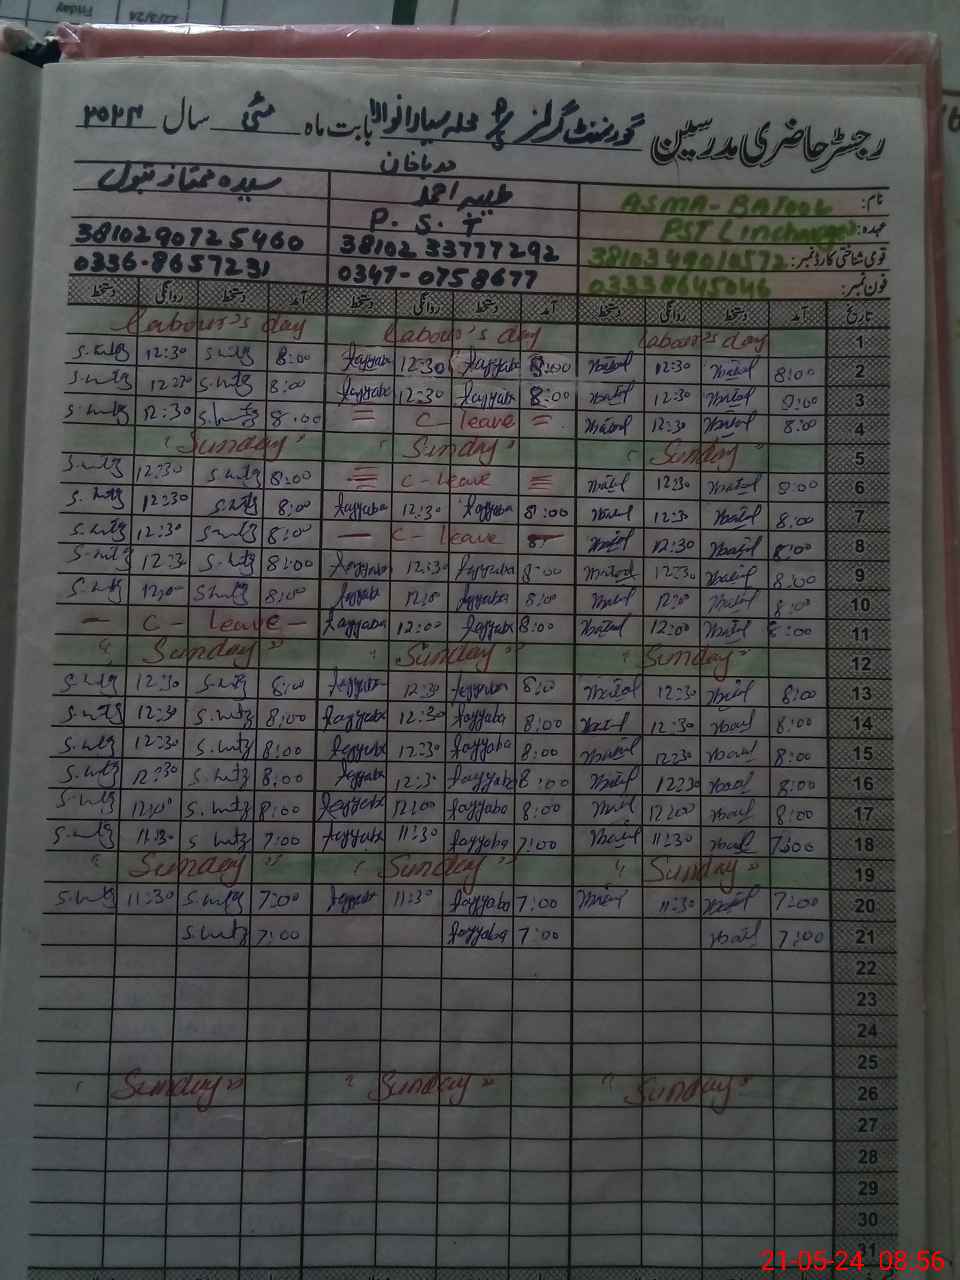 رجسٹر حاضری مدرسین گورنمنٹ گرلز P/S محلہ سیارانوالا بابت ماہ مئی سال ۲۰۲۴
دریاخان
نام: ASMA-BATOOL طیبہ احمد سیدہ ممتاز بتول
عہدہ: PST (incharge) P.S.T
قومی شناختی کارڈ نمبر: 38102 33777292 3810290725460
فون نمبر: 03338645046 0347-0758677 0336-8657231
تاریخ آمد دستخط روانگی دستخط آمد دستخط روانگی دستخط آمد دستخط روانگی دستخط
1 Labour's day Labour's day Labour's day
2 8:00 Batool 12:30 Batool 8:00 Tayyaba 12:30 Tayyaba 8:00 S.mtz 12:30 S.mtz
3 8:00 Batool 12:30 Batool 8:00 Tayyaba 12:30 Tayyaba 8:00 S.mtz 12:30 S.mtz
4 8:00 Batool 12:30 Batool C-leave 8:00 S.mtz 12:30 S.mtz
5 "Sunday" "Sunday" "Sunday"
6 8:00 Batool 12:30 Batool C-leave 8:00 S.mtz 12:30 S.mtz
7 8:00 Batool 12:30 Batool 8:00 Tayyaba 12:30 Tayyaba 8:00 S.mtz 12:30 S.mtz
8 8:00 Batool 12:30 Batool C-leave 8:00 S.mtz 12:30 S.mtz
9 8:00 Batool 12:30 Batool 8:00 Tayyaba 12:30 Tayyaba 8:00 S.mtz 12:30 S.mtz
10 8:00 Batool 12:00 Batool 8:00 Tayyaba 12:00 Tayyaba 8:00 S.mtz 12:00 S.mtz
11 8:00 Batool 12:00 Batool 8:00 Tayyaba 12:00 Tayyaba - C - Leave -
12 "Sunday" "Sunday" "Sunday"
13 8:00 Batool 12:30 Batool 8:00 Tayyaba 12:30 Tayyaba 8:00 S.mtz 12:30 S.mtz
14 8:00 Batool 12:30 Batool 8:00 Tayyaba 12:30 Tayyaba 8:00 S.mtz 12:30 S.mtz
15 8:00 Batool 12:30 Batool 8:00 Tayyaba 12:30 Tayyaba 8:00 S.mtz 12:30 S.mtz
16 8:00 Batool 12:30 Batool 8:00 Tayyaba 12:30 Tayyaba 8:00 S.mtz 12:30 S.mtz
17 8:00 Batool 12:00 Batool 8:00 Tayyaba 12:00 Tayyaba 8:00 S.mtz 12:00 S.mtz
18 7:00 Batool 11:30 Batool 7:00 Tayyaba 11:30 Tayyaba 7:00 S.mtz 11:30 S.mtz
19 "Sunday" "Sunday" "Sunday"
20 7:00 Batool 11:30 Batool 7:00 Tayyaba 11:30 Tayyaba 7:00 S.mtz 11:30 S.mtz
21 7:00 Batool 7:00 Tayyaba 7:00 S.mtz
22
23
24
25
26 "Sunday" "Sunday" "Sunday"
27
28
29
30
31
21-05-24 08:56